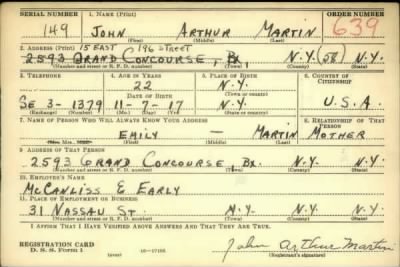 SERIAL NUMBER 1. NAME (Print) ORDER NUMBER
149 JOHN ARTHUR MARTIN 639
(First) (Middle) (Last)
2. ADDRESS (Print) 15 EAST 196 STREET
2593 GRAND CONCOURSE, Bx. N.Y. (58) N.Y.
(Number and street or R. F. D. number) (Town) (County) (State)
3. TELEPHONE 4. AGE IN YEARS 5. PLACE OF BIRTH 6. COUNTRY OF CITIZENSHIP
22 N.Y.
DATE OF BIRTH (Town or county)
SE 3-1379 11-7-17 N.Y. U.S.A.
(Exchange) (Number) (Mo.) (Day) (Yr.) (State or country)
7. NAME OF PERSON WHO WILL ALWAYS KNOW YOUR ADDRESS 8. RELATIONSHIP OF THAT PERSON
EMILY - MARTIN MOTHER
(Mr., Mrs., Miss) (First) (Middle) (Last)
9. ADDRESS OF THAT PERSON
2593 GRAND CONCOURSE, Bx. N.Y. N.Y.
(Number and street or R. F. D. number) (Town) (County) (State)
10. EMPLOYER'S NAME
McCANLISS & EARLY
11. PLACE OF EMPLOYMENT OR BUSINESS
31 NASSAU ST. N.Y. N.Y.
(Number and street or R. F. D. number) (Town) (County) (State)
I AFFIRM THAT I HAVE VERIFIED ABOVE ANSWERS AND THAT THEY ARE TRUE.
REGISTRATION CARD
D. S. S. Form 1 (over) John Arthur Martin
(Registrant's signature)